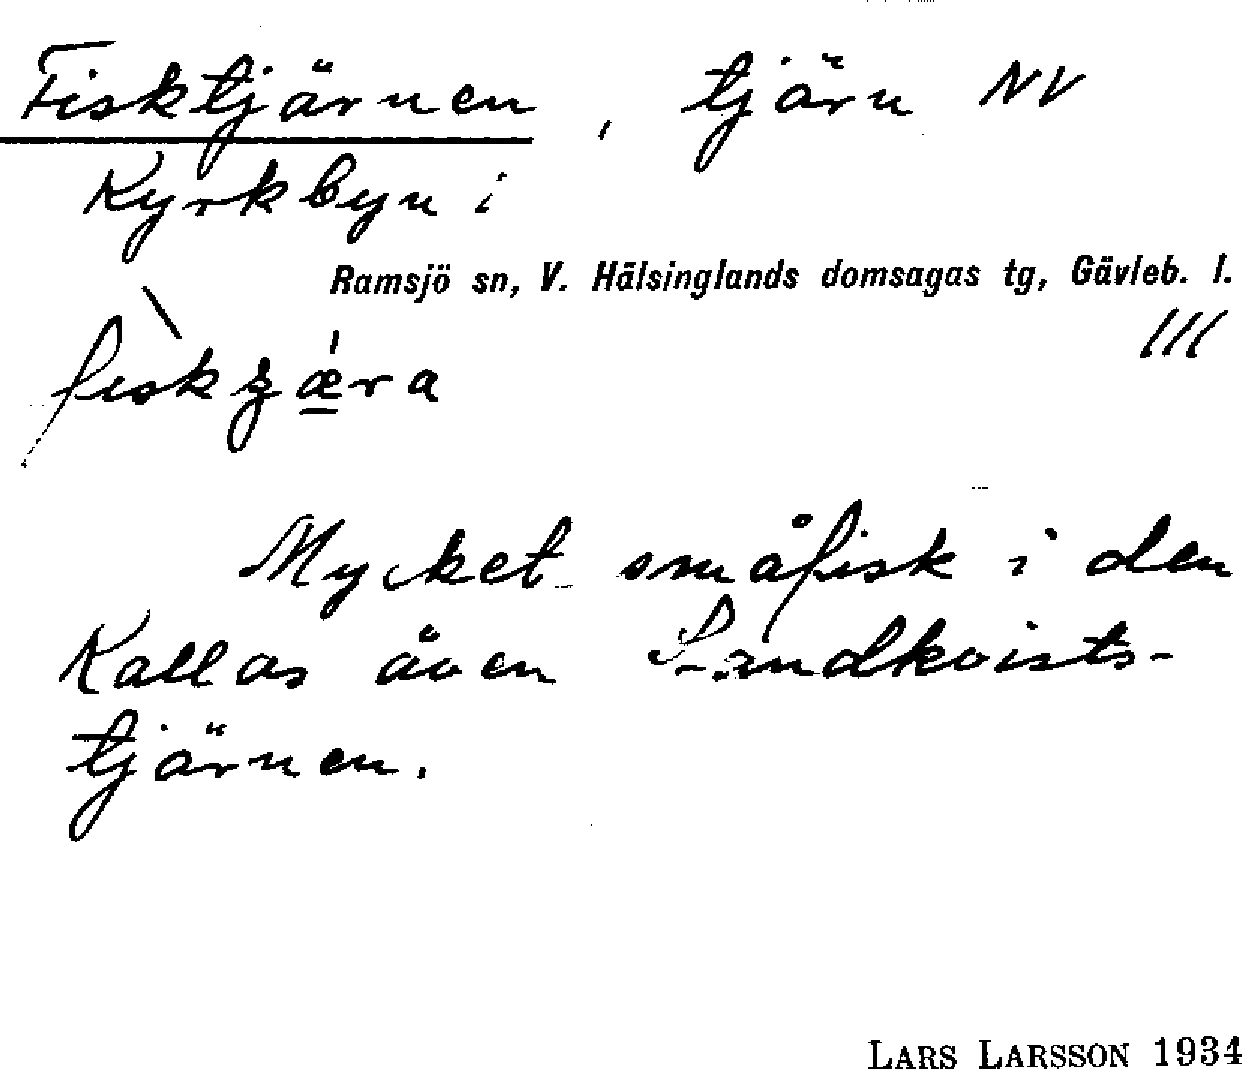 Fisktjärnen, tjärn NV
Kyrkbyn i
Ramsjö sn, V. Hälsinglands domsagas tg, Gävleb. l.
III
Mycket småfisk i den
Kallas även Sandkvists-
tjärnen.
LARS LARSSON 1934